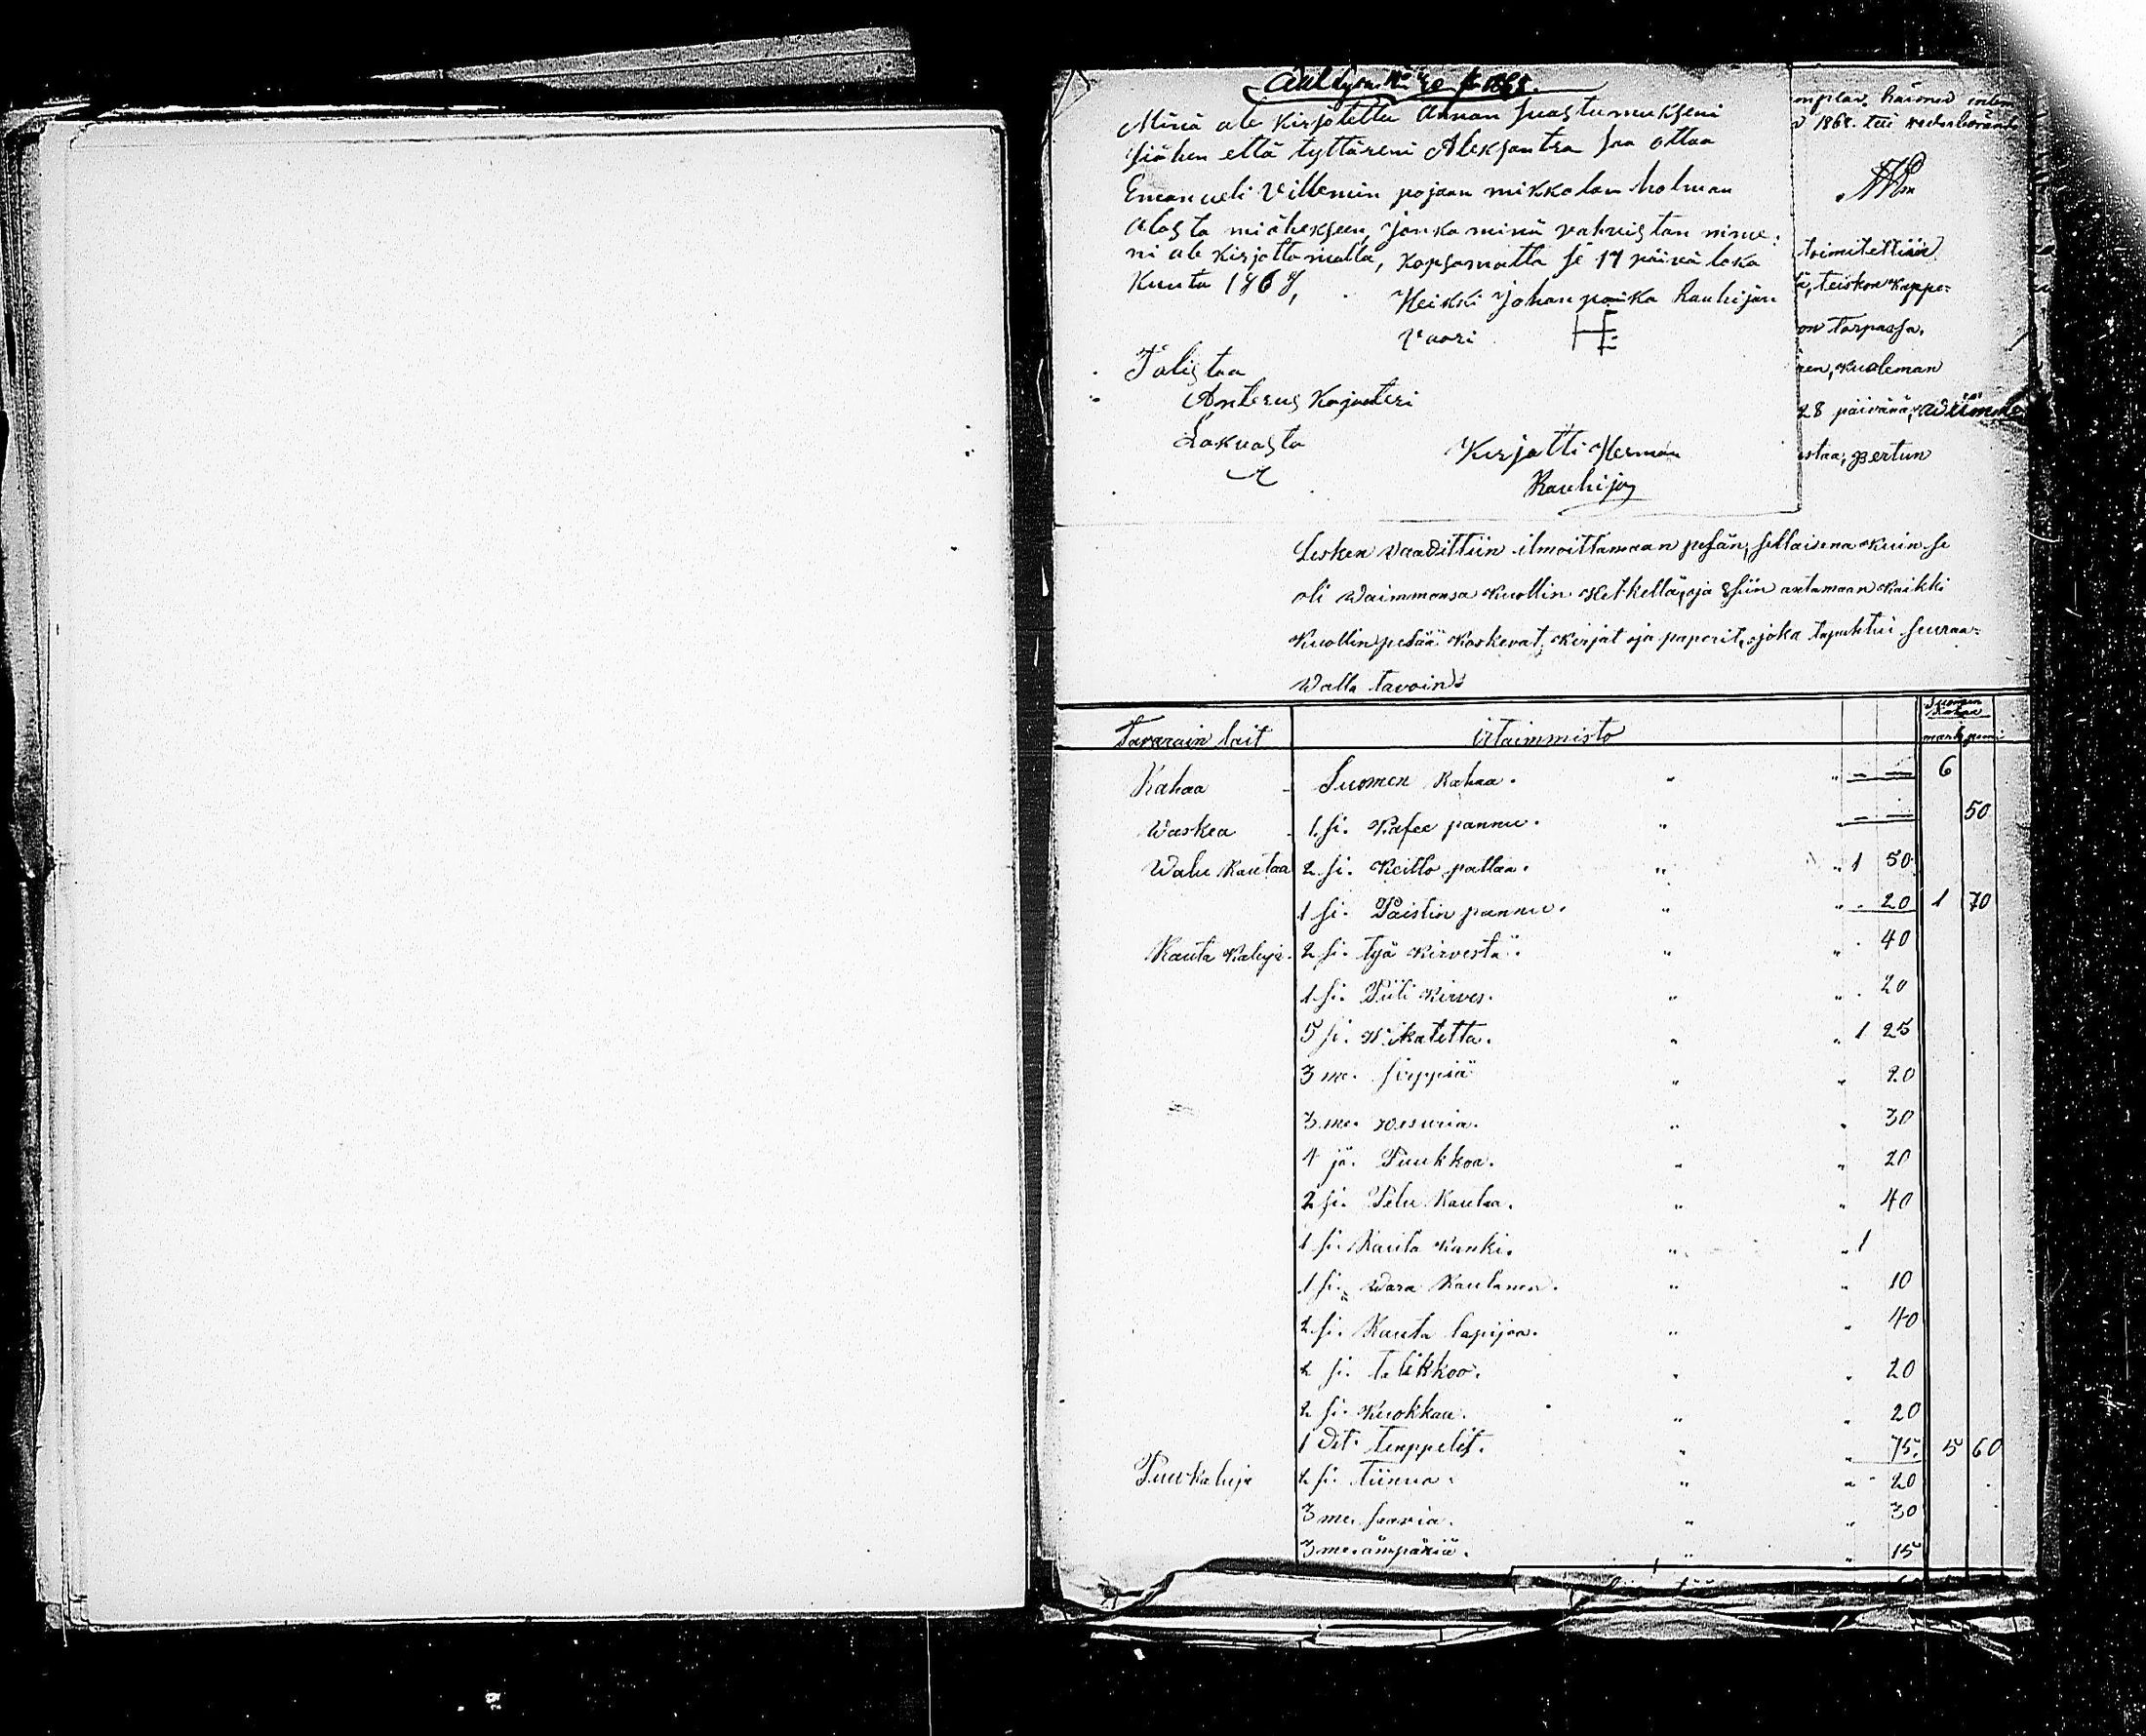 Minä ale Kirjotettu Annan suastumukseni
siähen että tyttäreni Aleksantra saa ottaa
Emanueli Villemin pojaan mikkolan holman
alasta miähekseen, jonka minä vahvistan nime:
ni ale Kirjottamalla, Kapsamatta se 17 päivä loka
Kuuta 1868,
Heikki Johan poika Rauhijan
Vaari
Tolistaa
Anterus Kojanteri
Lakuasta
Kirjotti Herman
Rauhija
1868. till
toimitettiin
teiskon Kappe:
on torpassa.
Kuoleman
28 päivänä,
Pertun
Lesken vaadittiin ilmoittamaan pesän, sellaisena Kuin se
oli Waimmonsa Kuollin Hetkellä, ja Esiin antamaan Kaikki
Kuollin pesää Koskevat, Kirjat ja paperit, joka tapahtui seuraa:
Walla tavoin:
Tavarain lait irtaimmisto Suomen Rahaa
mark peni
Rahaa Suomen Rahaa. " " — — 6
Waskea 1. si. Kafee pannu. " " — — 50
Walu Rautaa 2. si. Keitto pattaa. " " 1 50
1 si. Paistin pannu. " " 20 1 70
Rauta Kaluja. 2 si. työ Kirvestä. " " 40
1. si. Piili Kirves. " " 20
5 si. Wikatetta. " " 1 25
3 me. sirppiä " " 20
3. me. vesuria. " " 30
4 jä. Puukkoa. " " 20
2 si. Pelu Rautaa. " " 40
1 si. Rauta Kanki. " " 1
1 si. Wara Rautanen. " " 10
2. si. Rauta lapijoa. " " 40
2 si. talikkoo. " " 20
2 si. Kuokkaa. " " 20
1 Dit. tenppelit. " " 75. 5 60
Puu Kaluja 2 si. tiinua. " " 20
3 me. saavia. " " 30
3 me. ämpäriä. " " 15